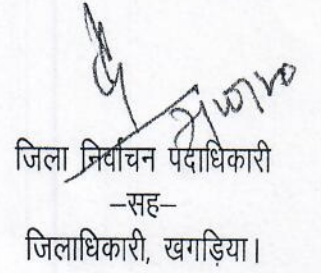 जिला निर्वाचन पदाधिकारी
–सह–
जिलाधिकारी, खगड़िया।